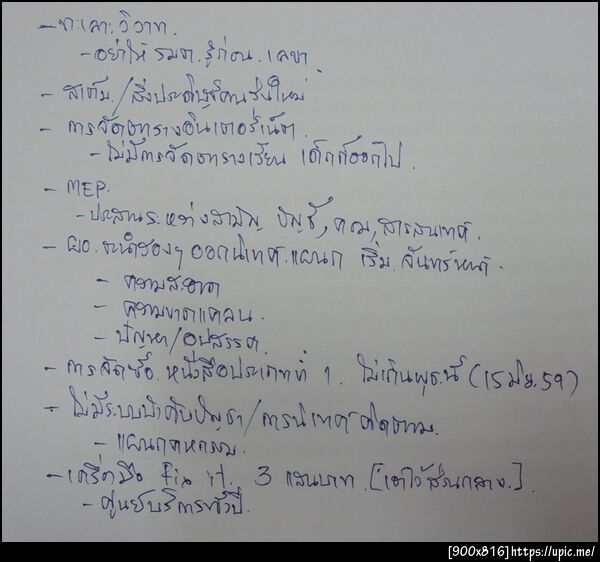 - ทะเลาะวิวาท.
- อย่าให้ รมต. รู้ก่อน เลขา.
- สเต็ม / สิ่งประดิษฐ์คนรุ่นใหม่
- การจัดตารางอินเตอร์เน็ต.
- ไม่มีการจัดตารางเรียน เด็กก็ออกไป.
- MEP.
- ประสานระหว่างสามัญ, บัญชี, คอม, สารสนเทศ.
- ผอ. จะนำรองๆ ออกนิเทศ แผนก เริ่ม จันทร์หน้า.
- ความสะอาด
- ความขาดแคลน.
- ปัญหา / อุปสรรค.
- การจัดซื้อ หนังสือประเภทที่ 1. ไม่เกินพุธนี้ (15 มิย. 59)
- ไม่มีระบบบังคับบัญชา / การนิเทศ ติดตาม.
- แผนกคหกรรม.
- เครื่องมือ fix it. 3 แสนบาท. [เอาไว้ส่วนกลาง.]
- ศูนย์บริการทั้งปี.
[900x816] https://upic.me/